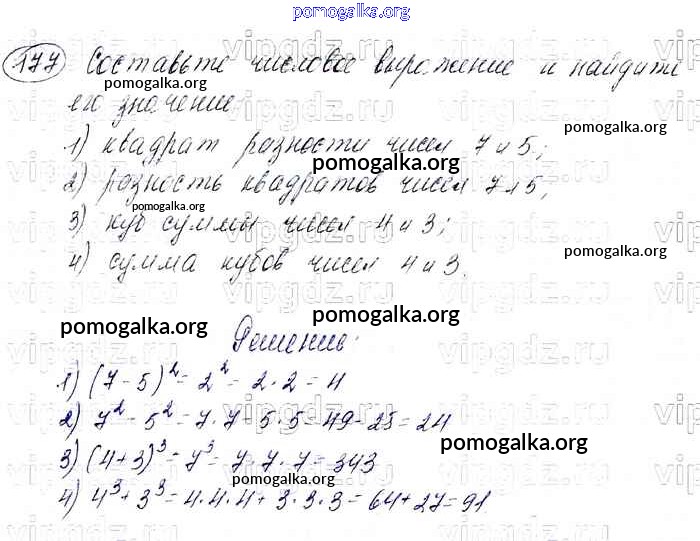 pomogalka.org
177 Составьте числовое выражение и найдите
его значение:
pomogalka.org
pomogalka.org
1) квадрат разности чисел 7 и 5;
pomogalka.org
2) разность квадратов чисел 7 и 5;
pomogalka.org
3) куб суммы чисел 4 и 3;
pomogalka.org
4) сумма кубов чисел 4 и 3.
pomogalka.org
pomogalka.org
Решение:
1) (7 - 5)² = 2² = 2 · 2 = 4
2) 7² - 5² = 7 · 7 - 5 · 5 = 49 - 25 = 24
pomogalka.org
3) (4+3)³ = 7³ = 7 · 7 · 7 = 343
pomogalka.org
4) 4³ + 3³ = 4 · 4 · 4 + 3 · 3 · 3 = 64 + 27 = 91
vipgdz.ru